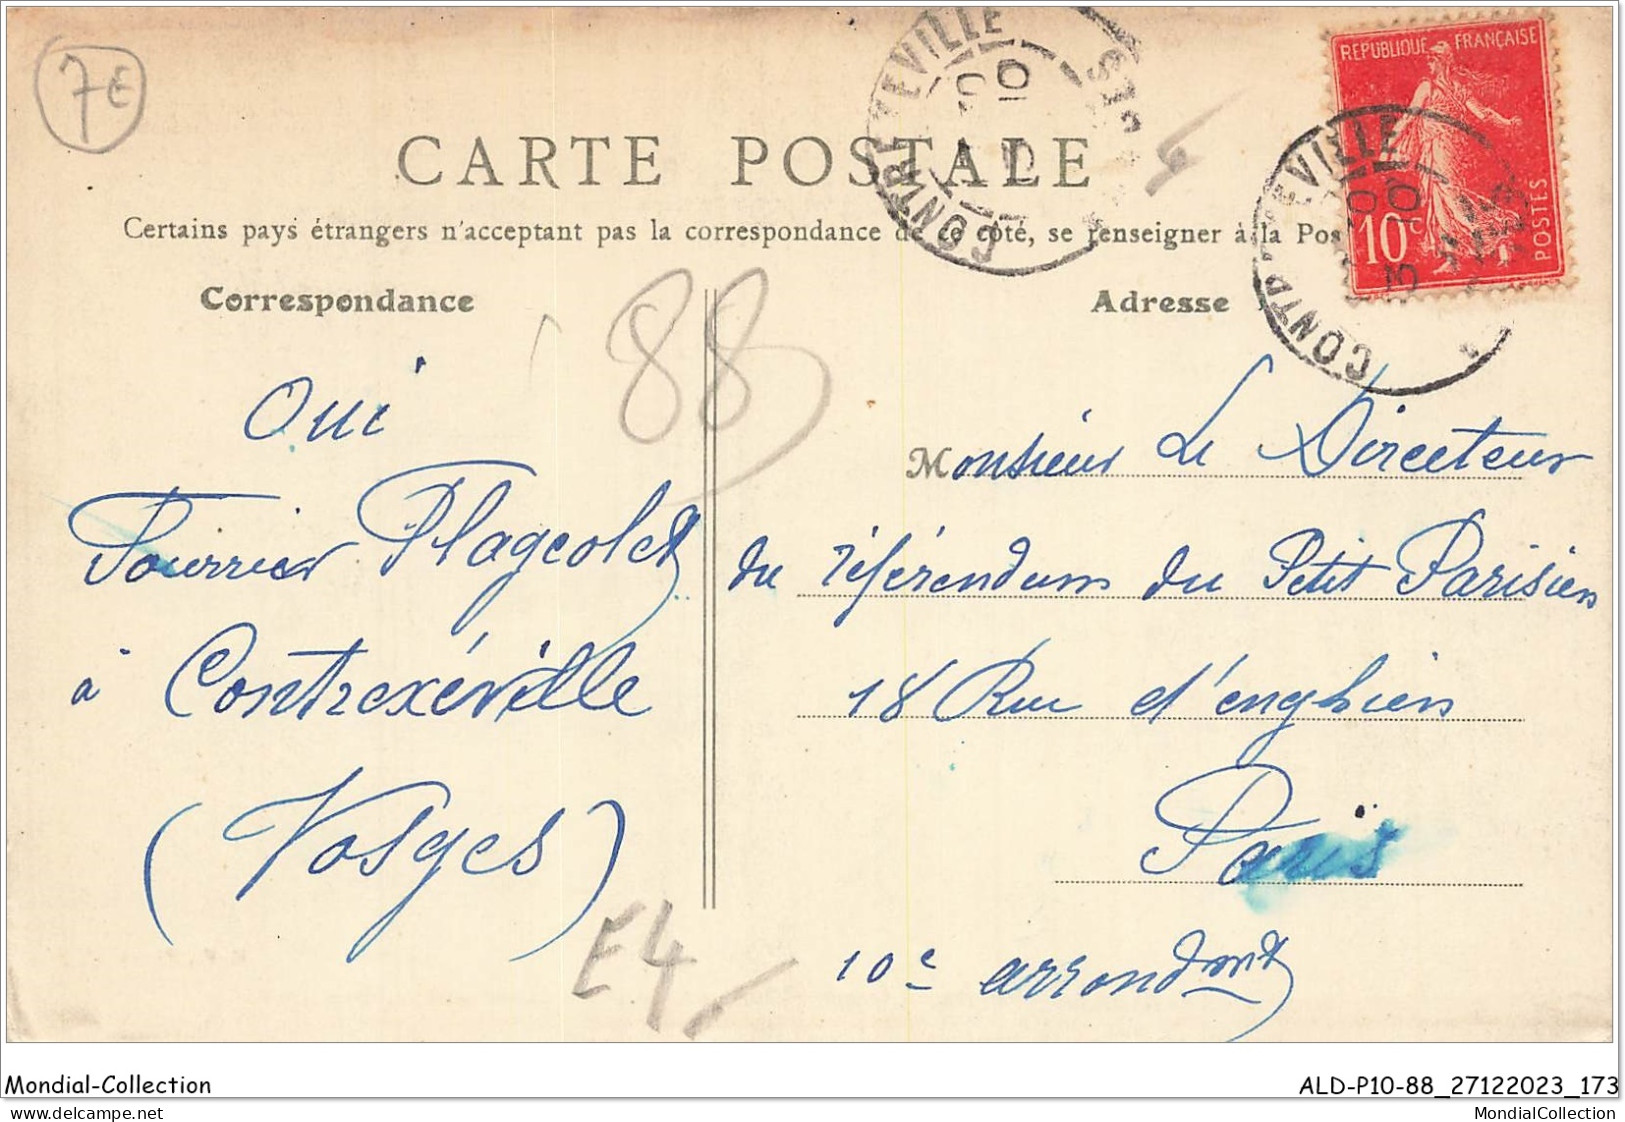 7€
CARTE POSTALE
Certains pays étrangers n'acceptant pas la correspondance de ce côté, se renseigner à la Pos
Correspondance
Adresse
RÉPUBLIQUE FRANÇAISE
10c
POSTES
CONTREXEVILLE
CONTREXEVILLE
88
Oui
Fourrier Flageolet
à Contrexéville
(Vosges)
E4
Monsieur Le Directeur
du référendum du Petit Parisien
18 Rue d'enghien
Paris
10e arrondmt
Mondial-Collection
ALD-P10-88_27122023_173
www.delcampe.net
MondialCollection